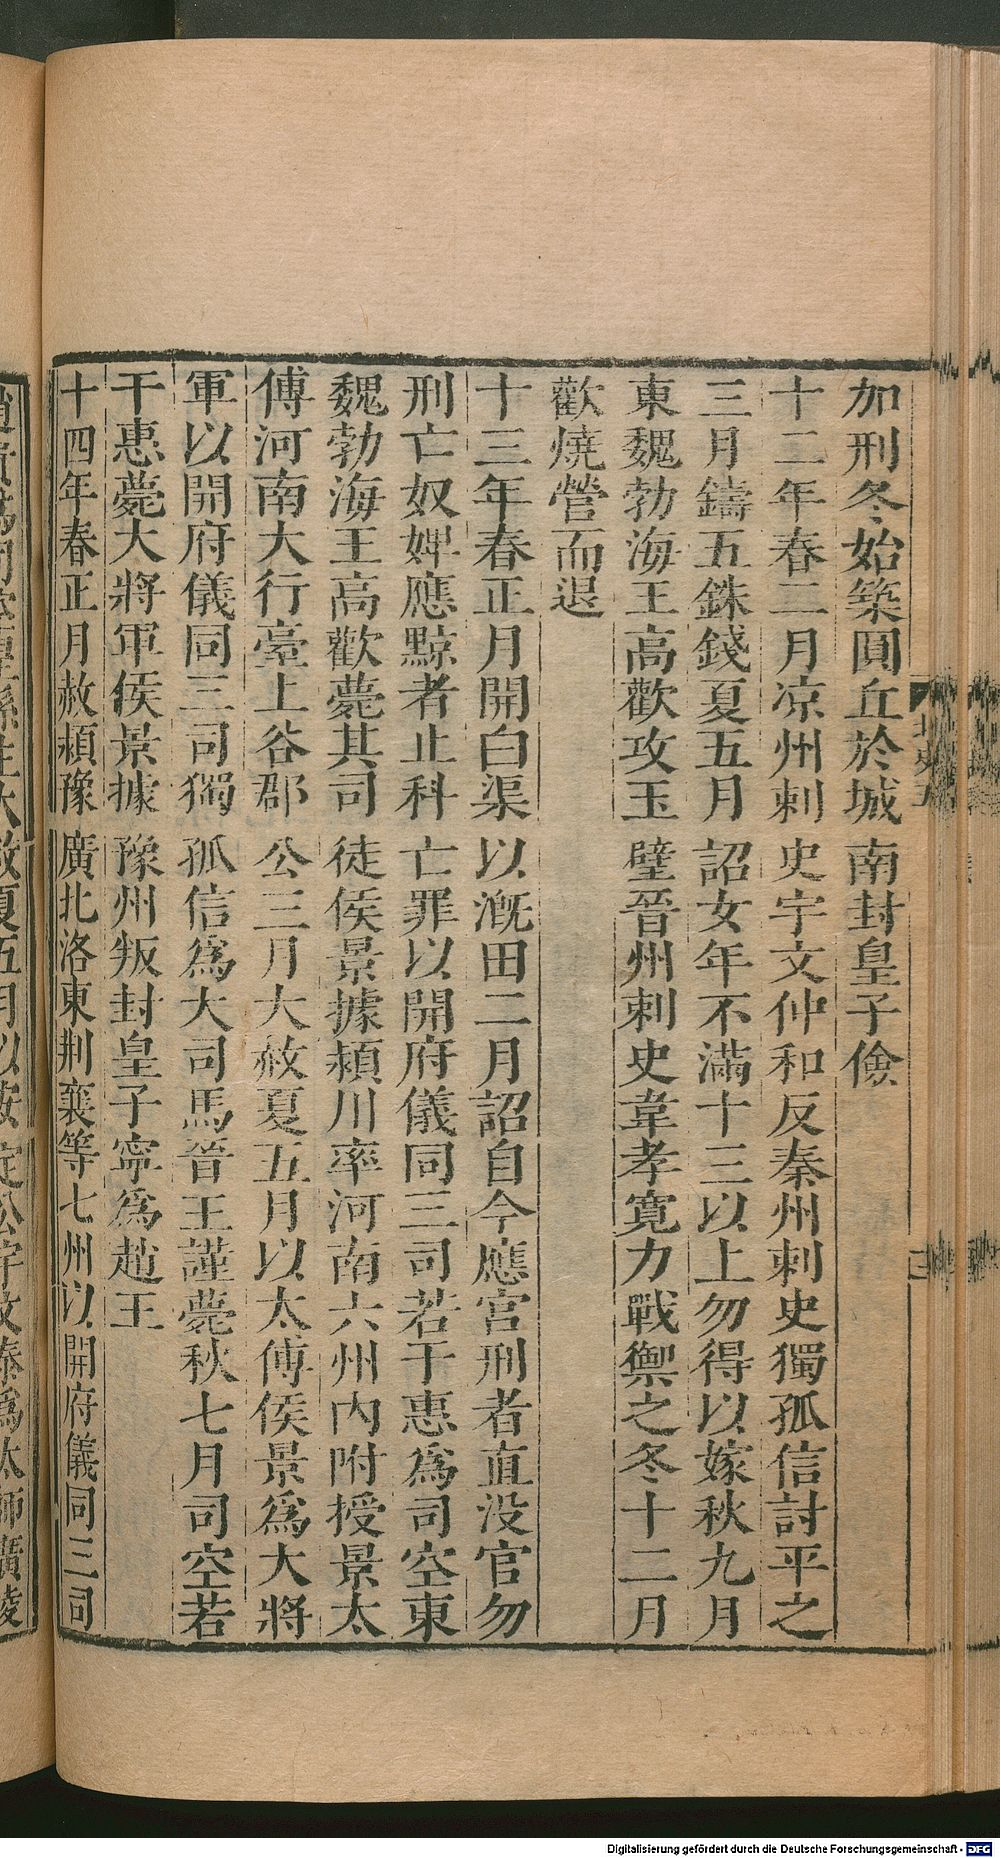 加刑冬始築圓丘於城南封皇子儉
十二年春二月凉州刺史宇文仲和反秦州刺史獨孤信討平之
三月鑄五銖錢夏五月詔女年不滿十三以上勿得以嫁秋九月
東魏勃海王高歡攻玉壁晉州刺史韋孝寬力戰禦之冬十二月
歡燒營而退
十三年春正月開白渠以漑田二月詔自今應宮刑者直没官勿
刑亡奴婢應黥者止科亡罪以開府儀同三司若干惠爲司空東
魏勃海王高歡薨其司徒侯景據潁川率河南六州内附授景太
傅河南大行臺上谷郡公三月大赦夏五月以太傅侯景爲大將
軍以開府儀同三司獨孤信爲大司馬晉王謹薨秋七月司空若
干惠薨大將軍侯景據豫州叛封皇子寧爲趙王
十四年春正月赦潁豫廣北洛東荆襄等七州以開府儀同三司
大赦夏五月以安定公宇文泰爲太師廣陵
Digitalisierung gefördert durch die Deutsche Forschungsgemeinschaft - DFG